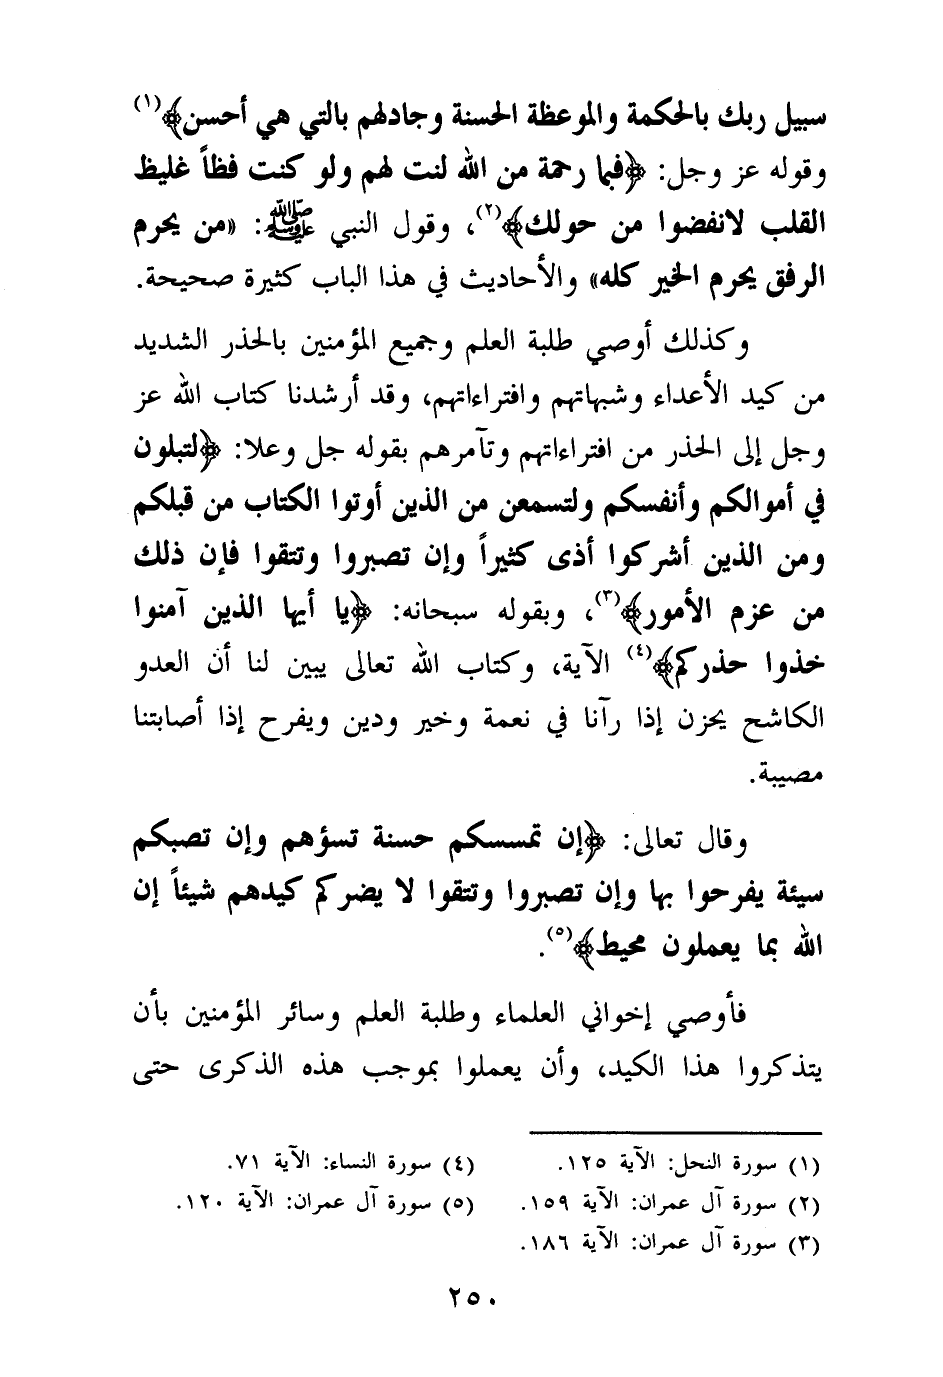 سبيل ربك بالحكمة والموعظة الحسنة وجادلهم بالتي هي أحسن﴾(١)
وقوله عز وجل: ﴿فبما رحمة من الله لنت لهم ولو كنت فظاً غليظ
القلب لانفضوا من حولك﴾(٢)، وقول النبي ﷺ: «من يحرم
الرفق يحرم الخير كله» والأحاديث في هذا الباب كثيرة صحيحة.
وكذلك أوصي طلبة العلم وجميع المؤمنين بالحذر الشديد
من كيد الأعداء وشبهاتهم وافتراءاتهم، وقد أرشدنا كتاب الله عز
وجل إلى الحذر من افتراءاتهم وتآمرهم بقوله جل وعلا: ﴿لتبلون
في أموالكم وأنفسكم ولتسمعن من الذين أوتوا الكتاب من قبلكم
ومن الذين أشركوا أذى كثيراً وإن تصبروا وتتقوا فإن ذلك
من عزم الأمور﴾(٣)، وبقوله سبحانه: ﴿يا أيها الذين آمنوا
خذوا حذركم﴾(٤) الآية، وكتاب الله تعالى يبين لنا أن العدو
الكاشح يحزن إذا رآنا في نعمة وخير ودين ويفرح إذا أصابتنا
مصيبة.
وقال تعالى: ﴿إن تمسسكم حسنة تسؤهم وإن تصبكم
سيئة يفرحوا بها وإن تصبروا وتتقوا لا يضركم كيدهم شيئاً إن
الله بما يعملون محيط﴾(٥).
فأوصي إخواني العلماء وطلبة العلم وسائر المؤمنين بأن
يتذكروا هذا الكيد، وأن يعملوا بموجب هذه الذكرى حتى
(١) سورة النحل: الآية ١٢٥.
(٢) سورة آل عمران: الآية ١٥٩.
(٣) سورة آل عمران: الآية ١٨٦.
(٤) سورة النساء: الآية ٧١.
(٥) سورة آل عمران: الآية ١٢٠.
٢٥٠